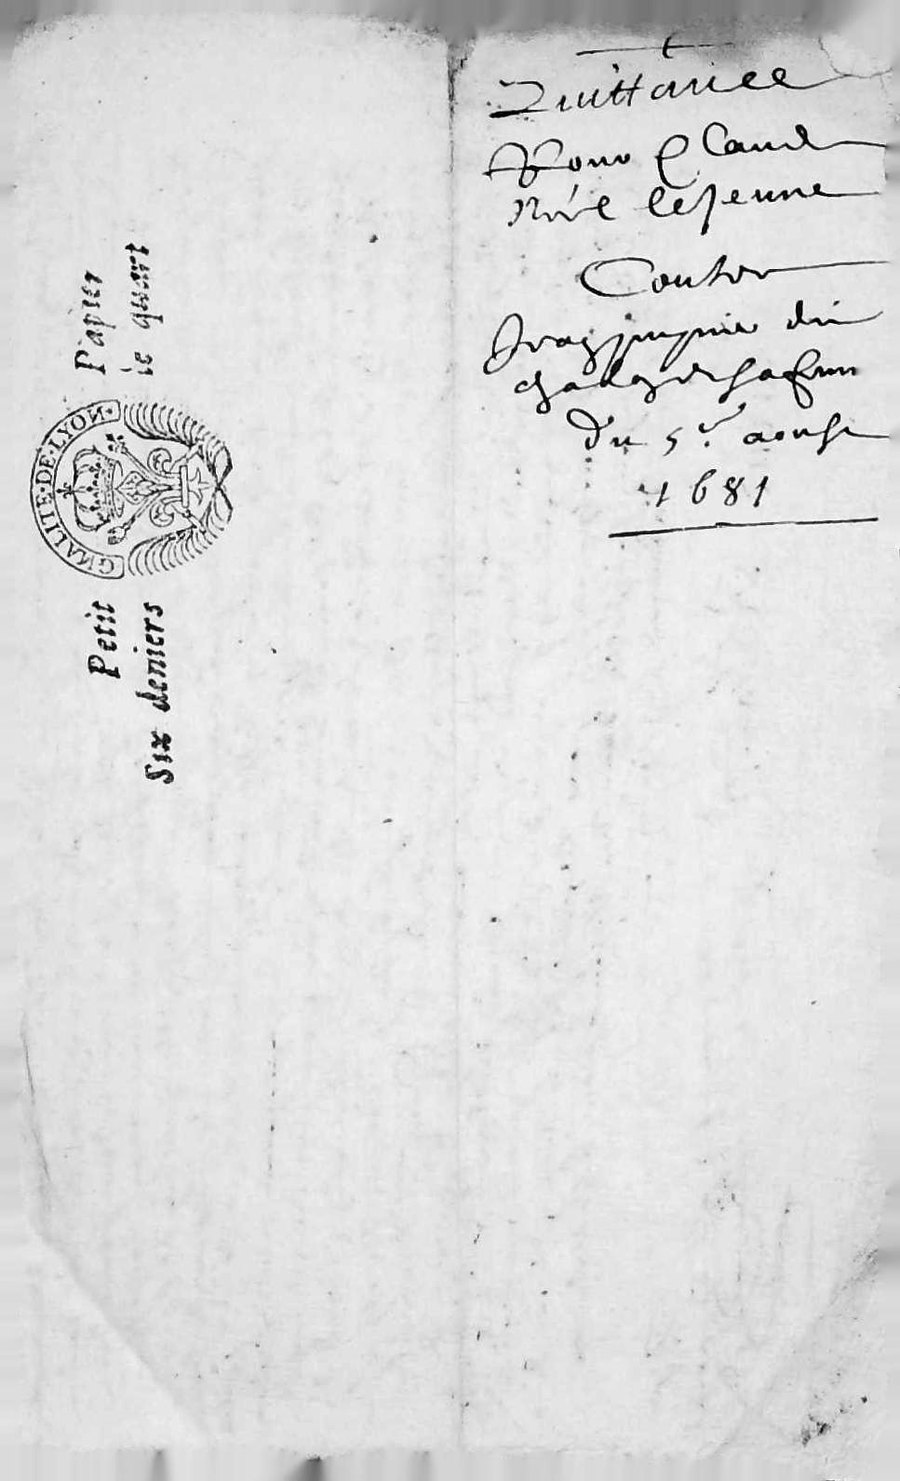 Quittance
Pour Claude
Noël lejeune
Contre
du
du 5.e aoust
1681
Petit Papier
Six deniers le quart
GNALITE·DE·LYON·